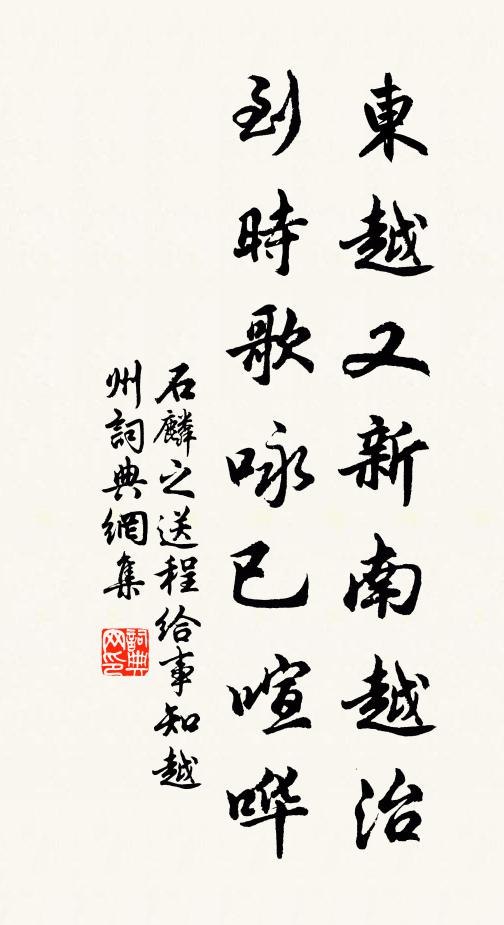 東越又新南越治
到時歌咏已喧哗
石麟之送程给事知越
州詞典網集
詞典
网印